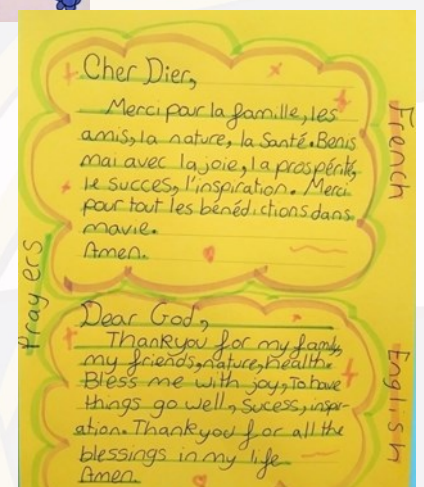 Cher Dier,
Merci pour la famille, les
amis, la nature, la Santé. Benis
mai avec la joie, la prospérité,
le succes, l'inspiration. Merci
pour tout les bénédictions dans
mavie.
Amen.
French
Prayers
Dear God,
Thankyou for my family,
my friends, nature, health.
Bless me with joy, To have
things go well, Sucess, inspir-
ation. Thankyou for all the
blessings in my life
Amen.
English